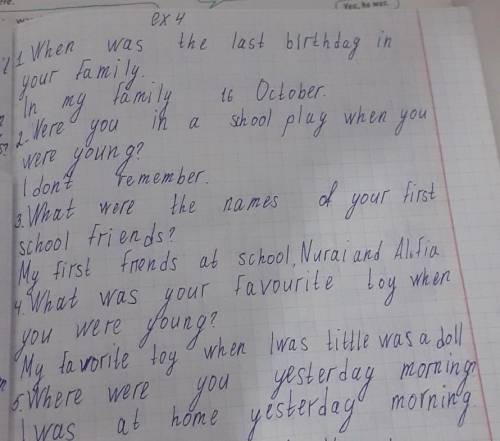 Yes, he was.
ex 4
1. When was the last birthday in
your family.
In my family 16 October.
2. Were you in a school play when you
were young?
I don't remember.
3. What were the names of your first
school friends?
My first friends at school, Nurai and Alifia
4. What was your favourite toy when
you were young?
My favorite toy when I was little was a doll
5. Where were you yesterday morning?
I was at home yesterday morning